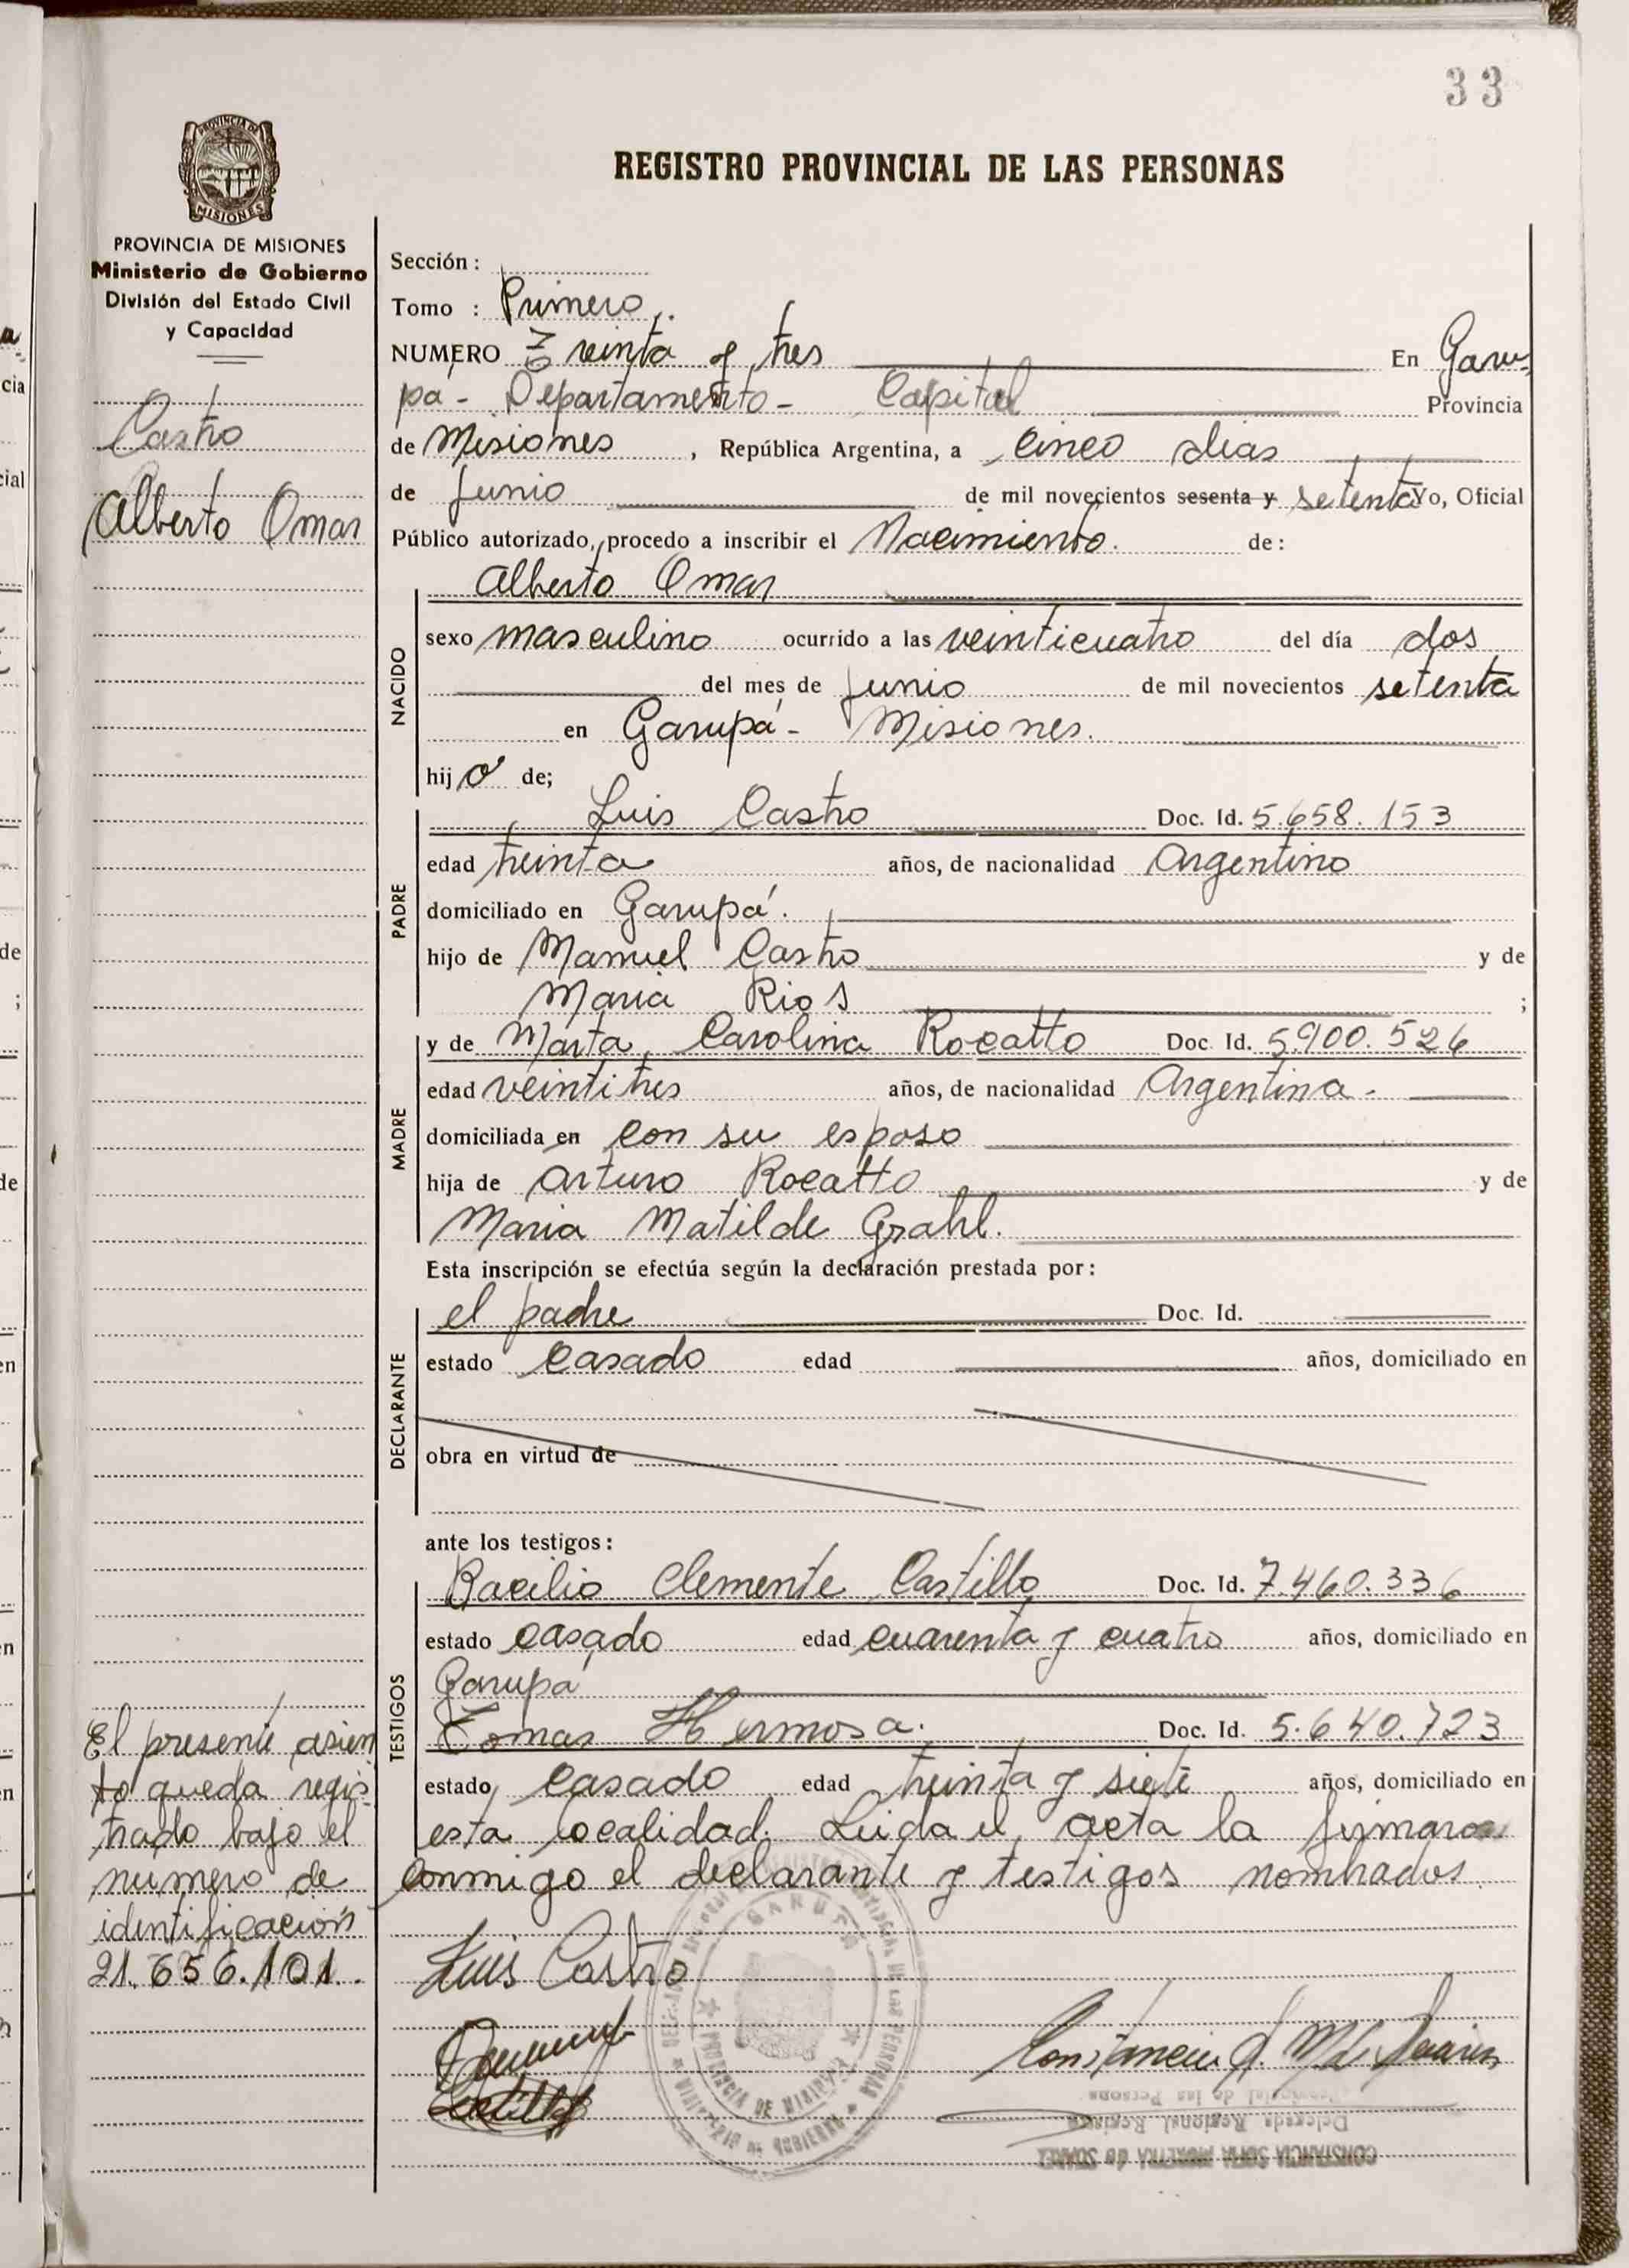 33
REGISTRO PROVINCIAL DE LAS PERSONAS
PROVINCIA DE MISIONES
PROVINCIA DE MISIONES
Ministerio de Gobierno
División del Estado Civil
y Capacidad
Castro
Alberto Omar
Sección :
Tomo : Primero.
NUMERO Treinta y tres En Garu-
pá - Departamento - Capital Provincia
de Misiones , República Argentina, a cinco dias
de Junio de mil novecientos sesenta y setenta Yo, Oficial
Público autorizado, procedo a inscribir el Nacimiento. de :
Alberto Omar
NACIDO
sexo masculino ocurrido a las veinticuatro del día dos
del mes de Junio de mil novecientos setenta
en Garupá - Misiones.
hij o de;
PADRE
Luis Castro Doc. Id. 5.658.153
edad treinta años, de nacionalidad Argentino
domiciliado en Garupá.
hijo de Manuel Castro y de
Maria Rios ;
MADRE
y de Marta Carolina Rocatto Doc. Id. 5.900.526
edad veintitres años, de nacionalidad Argentina -
domiciliada en con su esposo
hija de Arturo Rocatto y de
Maria Matilde Grahl.
Esta inscripción se efectúa según la declaración prestada por :
DECLARANTE
el padre Doc. Id.
estado casado edad años, domiciliado en
obra en virtud de
ante los testigos :
TESTIGOS
Racilio Clemente Castillo Doc. Id. 7.460.336
estado casado edad cuarenta y cuatro años, domiciliado en
Garupá
Tomas Hermosa. Doc. Id. 5.640.723
estado casado edad treinta y siete años, domiciliado en
esta localidad. Leida el acta la firmaron
conmigo el declarante y testigos nombrados.
El presente asien
to queda regis-
trado bajo el
numero de
identificación
21.656.101.
Luis Castro
Castillo
GARUPA
PROVINCIA DE MISIONES
MINISTERIO DE GOBIERNO
Provincial de las Personas
Delegada Regional
CONSTANCIA de SUAREZ